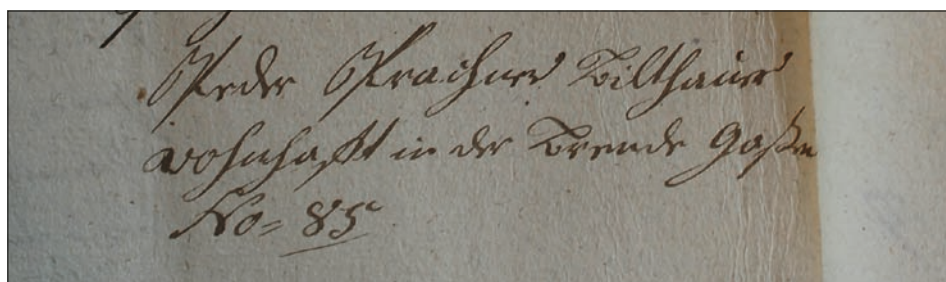 Peder Prachner Bilthauer
wohnhafft in der Breede Gaßen
No= 85